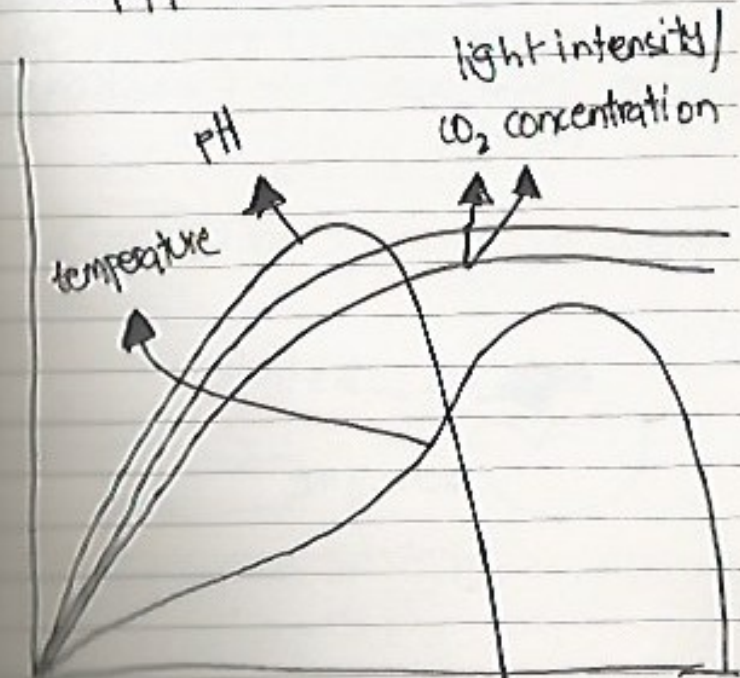 light intensity/
CO₂ concentration
pH
temperature